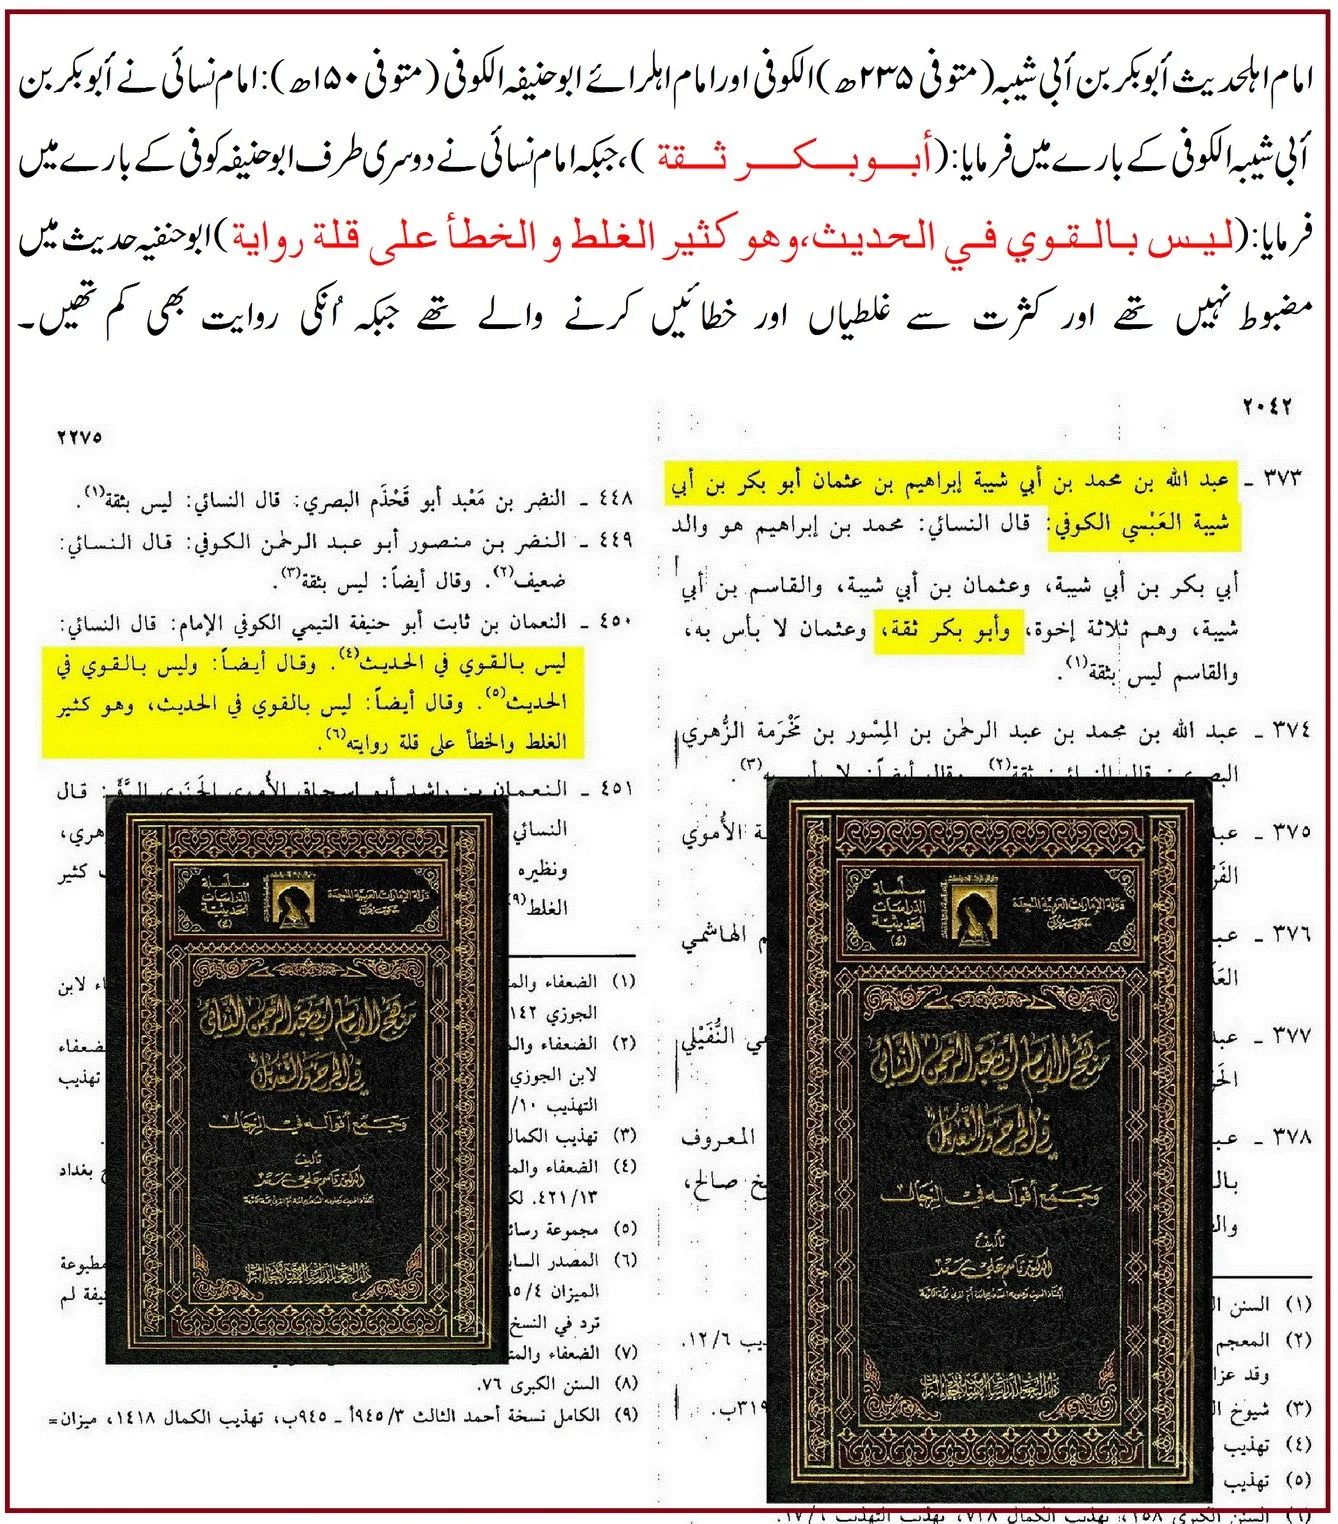 امام اہلحدیث أبو بکر بن أبی شیبہ (متوفی ۲۳۵ھ) الکوفی اور امام اہلرائے ابو حنیفہ الکوفی (متوفی ۱۵۰ھ): امام نسائی نے أبو بکر بن
أبی شیبہ الکوفی کے بارے میں فرمایا: (أبـو بـكـر ثـقة )، جبکہ امام نسائی نے دوسری طرف ابو حنیفہ کوفی کے بارے میں
فرمایا: (ليـس بـالـقـوي فـي الحديث،وهو كثير الغلط و الخطأ على قلة رواية) ابو حنفیہ حدیث میں
مضبوط نہیں تھے اور کثرت سے غلطیاں اور خطائیں کرنے والے تھے جبکہ اُنکی روایت بھی کم تھیں۔
٢٠٤٢
٣٧٣ ـ عبد الله بن محمد بن أبي شيبة إبراهيم بن عثمان أبو بكر بن أبي
شيبة العَبْسي الكوفي: قال النسائي: محمد بن إبراهيم هو والد
أبي بكر بن أبي شيبة، وعثمان بن أبي شيبة، والقاسم بن أبي
شيبة، وهم ثلاثة إخوة، وأبو بكر ثقة، وعثمان لا بأس به،
والقاسم ليس بثقة(١).
٣٧٤ ـ عبد الله بن محمد بن عبد الرحمٰن بن المِسْور بن مَخْرَمة الزُّهري
البصري: قال النسائي: ثقة(٢). وقال أيضاً: لا بأس به(٣).
٣٧٥ ـ عبد
ة الأموي
٣٧٦ ـ
م الهاشمي
٣٧٧ ـ عبد
النُّفَيْلي
٣٧٨ ـ
المعروف
خ صالح،
(١) السنن
(٢) المعجم
١٢/٦.
وقد عزا
(٣) شيوخ
٣١٩ب.
(٤) تهذيب
(٥) تهذيب
٢٢٧٥
٤٤٨ ـ النضر بن مَعْبد أبو قَحْذَم البصري: قال النسائي: ليس بثقة(١).
٤٤٩ ـ النضر بن منصور أبو عبد الرحمٰن الكوفي: قال النسائي:
ضعيف(٢). وقال أيضاً: ليس بثقة(٣).
٤٥٠ ـ النعمان بن ثابت أبو حنيفة التيمي الكوفي الإمام: قال النسائي:
ليس بالقوي في الحديث(٤). وقال أيضاً: وليس بالقوي في
الحديث(٥). وقال أيضاً: ليس بالقوي في الحديث، وهو كثير
الغلط والخطأ على قلة روايته(٦).
٤٥١ ـ النعمان بن راشد أبو إسحاق الأموي الجَزَري الرَّقِّي: قال
النسائي
هري،
ونظيره
كثير
الغلط(٩)
(١) الضعفاء والم
لابن
الجوزي
(٢) الضعفاء والم
ضعفاء
لابن الجوزي
تهذيب
التهذيب ١٠/
(٣) تهذيب الكمال
(٤) الضعفاء والم
بغداد
٤٢١/١٣.
(٥) مجموعة رسائل
(٦) المصدر السابق
مطبوعة
الميزان ٤/
يفة لم
ترد في النسخ
(٧) الضعفاء والم
(٨) السنن الكبرى ٧٦.
(٩) الكامل نسخة أحمد الثالث ٩٤٥/٣أ ـ ٩٤٥ب، تهذيب الكمال ١٤١٨، ميزان=
سلسلة
الدراسات
الحديثية
(٤)
دولة الإمارات العربية المتحدة
منهج الإمام أبي عبد الرحمن النسائي
في الجرح والتعديل
وجمع أقواله في الرجال
تأليف
الدكتور قاسم علي سعد
سلسلة
الدراسات
الحديثية
(٤)
دولة الإمارات العربية المتحدة
منهج الإمام أبي عبد الرحمن النسائي
في الجرح والتعديل
وجمع أقواله في الرجال
تأليف
الدكتور قاسم علي سعد